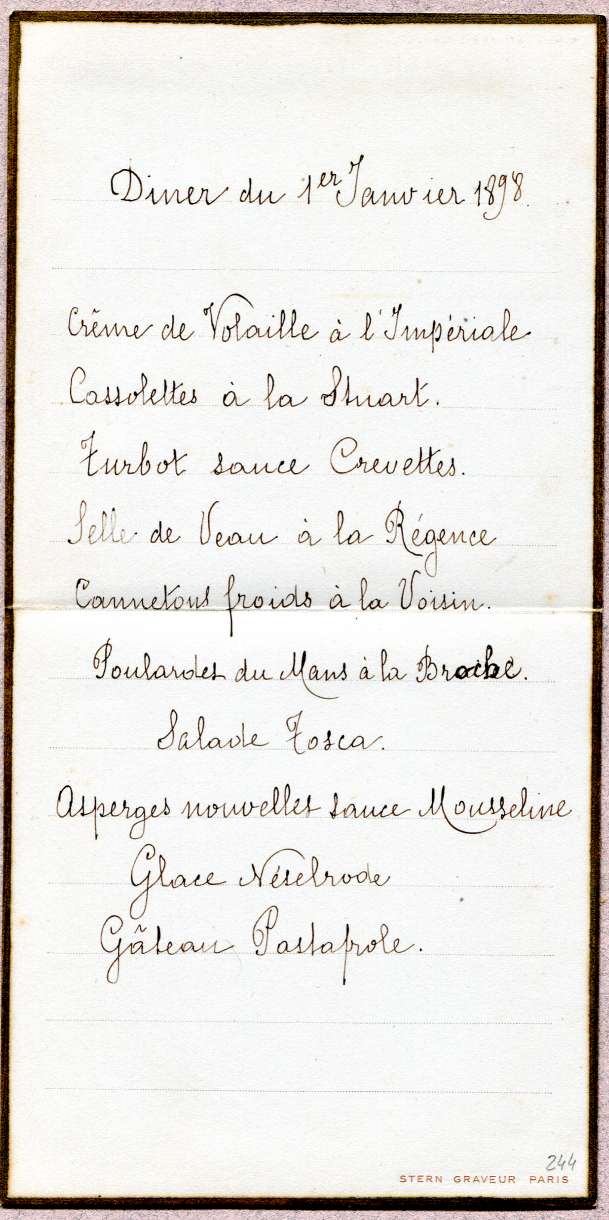 Diner du 1er Janvier 1898.
Crême de Volaille à l'Impériale
Cassolettes à la Stuart.
Turbot sauce Crevettes.
Selle de Veau à la Régence
Cannetons froids à la Voisin.
Poulardes du Mans à la Broche.
Salade Tosca.
Asperges nouvelles sauce Mousseline
Glace Nésselrode
Gâteau
244
STERN GRAVEUR PARIS